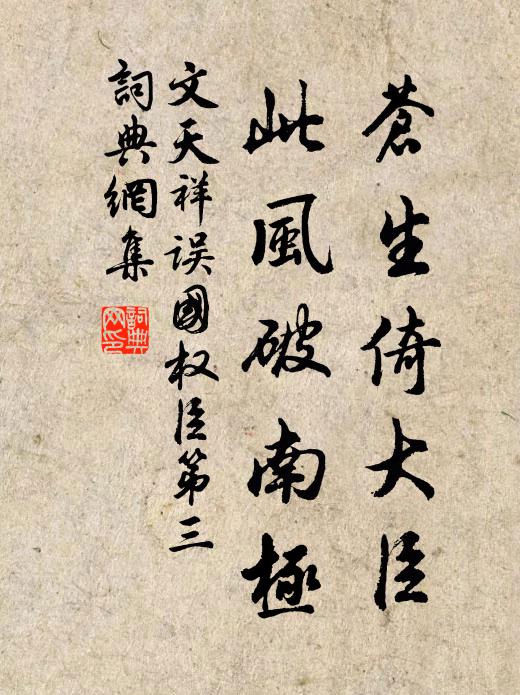 蒼生倚大臣
此風破南極
文天祥误國权臣第三
詞典網集
詞典網印